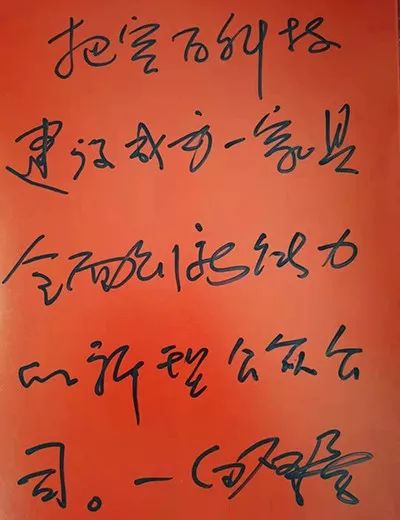 把科技
建设成为一家具
全面创新能力
的新型公众公
司。一